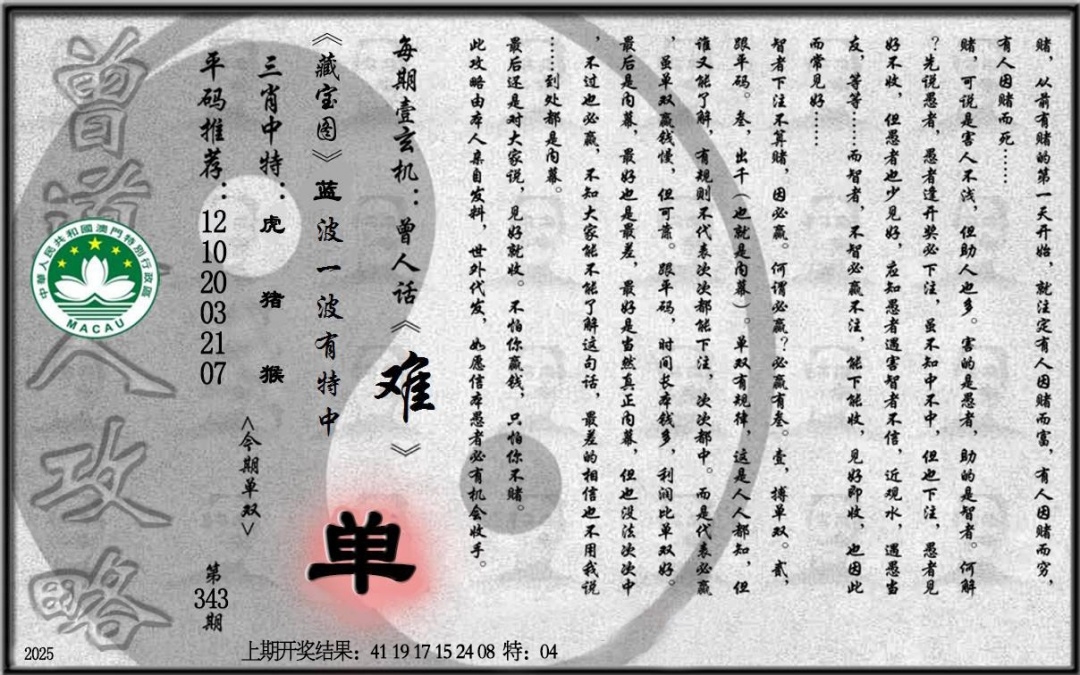 赌，从前有赌的第一天开始，就注定有人因赌而富，有人因赌而穷，
有人因赌而死……
赌，可说是害人不浅，但助人也多。害的是愚者，助的是智者。何解
？先说愚者，愚者逢开奖必下注，虽不知中不中，但也下注，愚者见
好不收，但愚者也少见好，应知愚者遇害智者不信，近观水，遇愚当
友，等等……而智者，不智必赢不注，能下能收，见好即收，也因此
而常见好……
智者下注不算赌，因必赢。何谓必赢？必赢有叁。壹，搏单双。贰，
跟平码。叁，出千（也就是内幕）。单双有规律，这是人人都知，但
谁又能了解，有规则不代表次次都能下注，次次都中。而是代表必赢
，虽单双赢钱慢，但可靠。跟平码，时间长本钱多，利润比单双好。
最后是内幕，最好也是最差，最好是当然真正内幕，但也没法次次中
，不过也必赢，不知大家能不能了解这句话，最差的相信也不用我说
……到处都是内幕。
最后还是对大家说，见好就收。不怕你赢钱，只怕你不赌。
此攻略由本人亲自发料，世外代发，如愿信本愚者必有机会收手。
每期壹玄机：曾人话《难》
《藏宝图》蓝波一波有特中
单
三肖中特：虎 猪 猴
<今期单双>
平码推荐：12 10 20 03 21 07
第343期
曾道人攻略
中華人民共和國澳門特別行政區
MACAU
2025
上期开奖结果：41 19 17 15 24 08 特：04